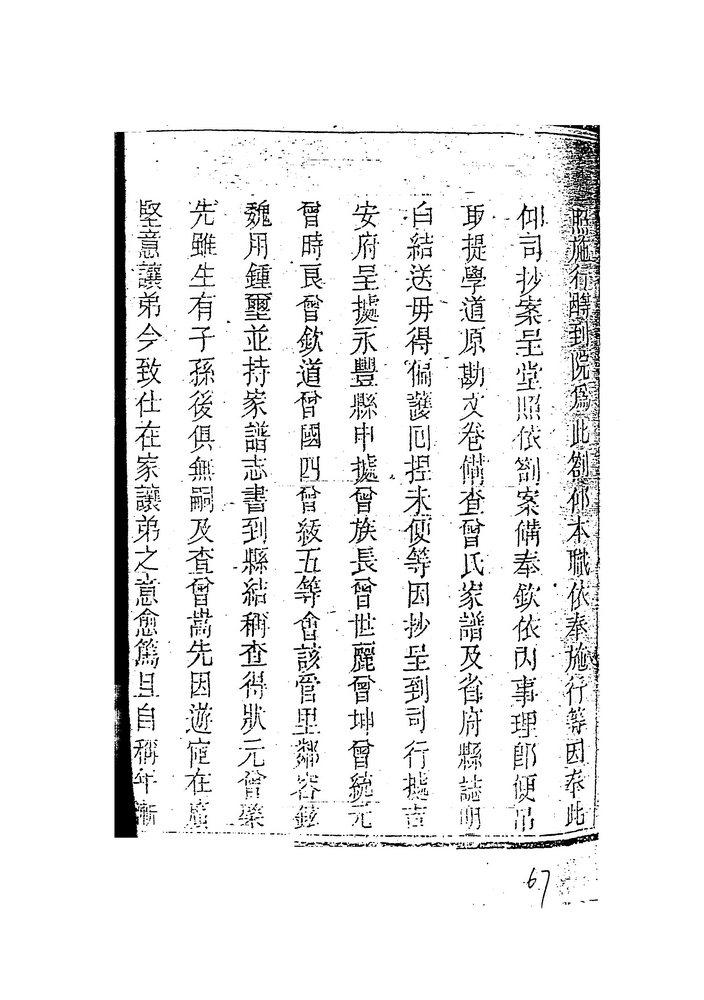 照施行時到院爲此劄仰本職依奉施行等因奉此
仰司抄案呈堂照依劄案備奉欽依內事理即便吊
取提學道原勘文卷備查曾氏家譜及省府縣誌明
白結送毋得偏護回捏未便等因抄呈到司行據吉
安府呈據永豐縣申據曾族長曾世麗曾坤曾統元
曾時良曾欽道曾國四曾級五等會該管里鄰容鉉
魏用鍾璽並持家譜志書到縣結稱查得狀元曾棨
先雖生有子孫後俱無嗣及查曾嵩先因遊宦在廣
堅意讓弟今致仕在家讓弟之意愈篤且自稱年漸
67